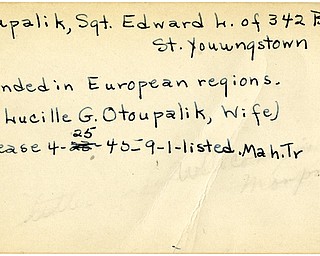 upalik, Sgt. Edward L. of 342
St. Youwngstown
nded in European regions.
Lucille G. Otoupalik, Wife)
25
ease 4- 28 - 45-9-1-listed. Mah. Tr